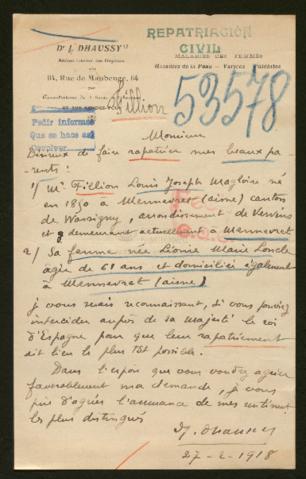 Dr L. DHAUSSY
REPATRIACIÓN
CIVIL
Ancien Interne des Hôpitaux
MALADIES DES FEMMES
84, Rue de Maubeuge, 84
Maladies de la Peau - Varices
Fillion
53578
Pedir informes
Que se haga así
Monsieur
Désireux de faire rapatrier mes beaux pa-
rents :
1/ Mr. Fillion Louis Joseph Magloire né
en 1850 à Mennevret (aisne) canton
de Wassigny, arrondissement de Vervins
et y demeurant actuellement à Mennevret
2/ Sa femme née Léonie Marie
agée de 61 ans et domiciliée également
à Mennevret (aisne)
je vous serais reconnaissant, si vous pouviez
intercéder auprès de sa Majesté le roi
d'Espagne pour que leur rapatriement
ait lieu le plus tôt possible.
Dans l'espoir que vous voudrez agréer
favorablement ma demande, je vous
prie d'agréer l'assurance de mes sentiments
les plus distingués
Dr. Dhaussy
27-2-1918